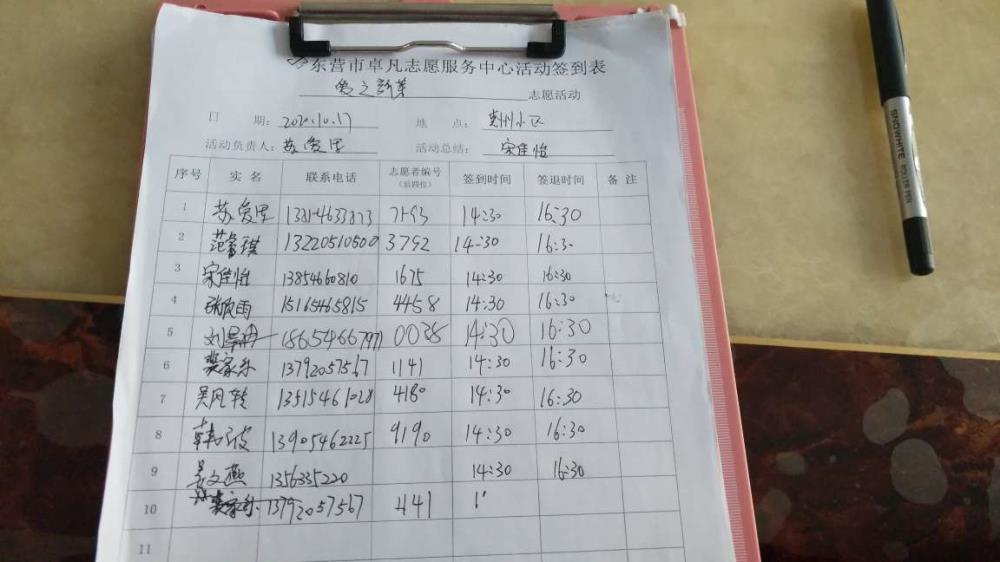 东营市卓凡志愿服务中心活动签到表
爱之 志愿活动
日 期: 2020.10.17 地 点: 小区
活动负责人: 苏爱军 活动总结: 宋佳怡
序号 实 名 联系电话 志愿者编号 (后四位) 签到时间 签退时间 备 注
1 苏爱军 7593 14:30 16:30
2 范 琪 13220510500 3792 14:30 16:30
3 宋佳怡 13854660810 1675 14:30 16:30
4 雨 15165465815 4458 14:30 16:30
5 刘 18654667971 0038 14:30 16:30
6 裴家乐 13792057567 1141 14:30 16:30
7 吴风 13515461028 4180 14:30 16:30
8 韩 波 13905462225 9190 14:30 16:30
9 吴文燕 1356335220 14:30 16:30
10 裴家乐 13792057567 1141 1'
11
SNOWHITE